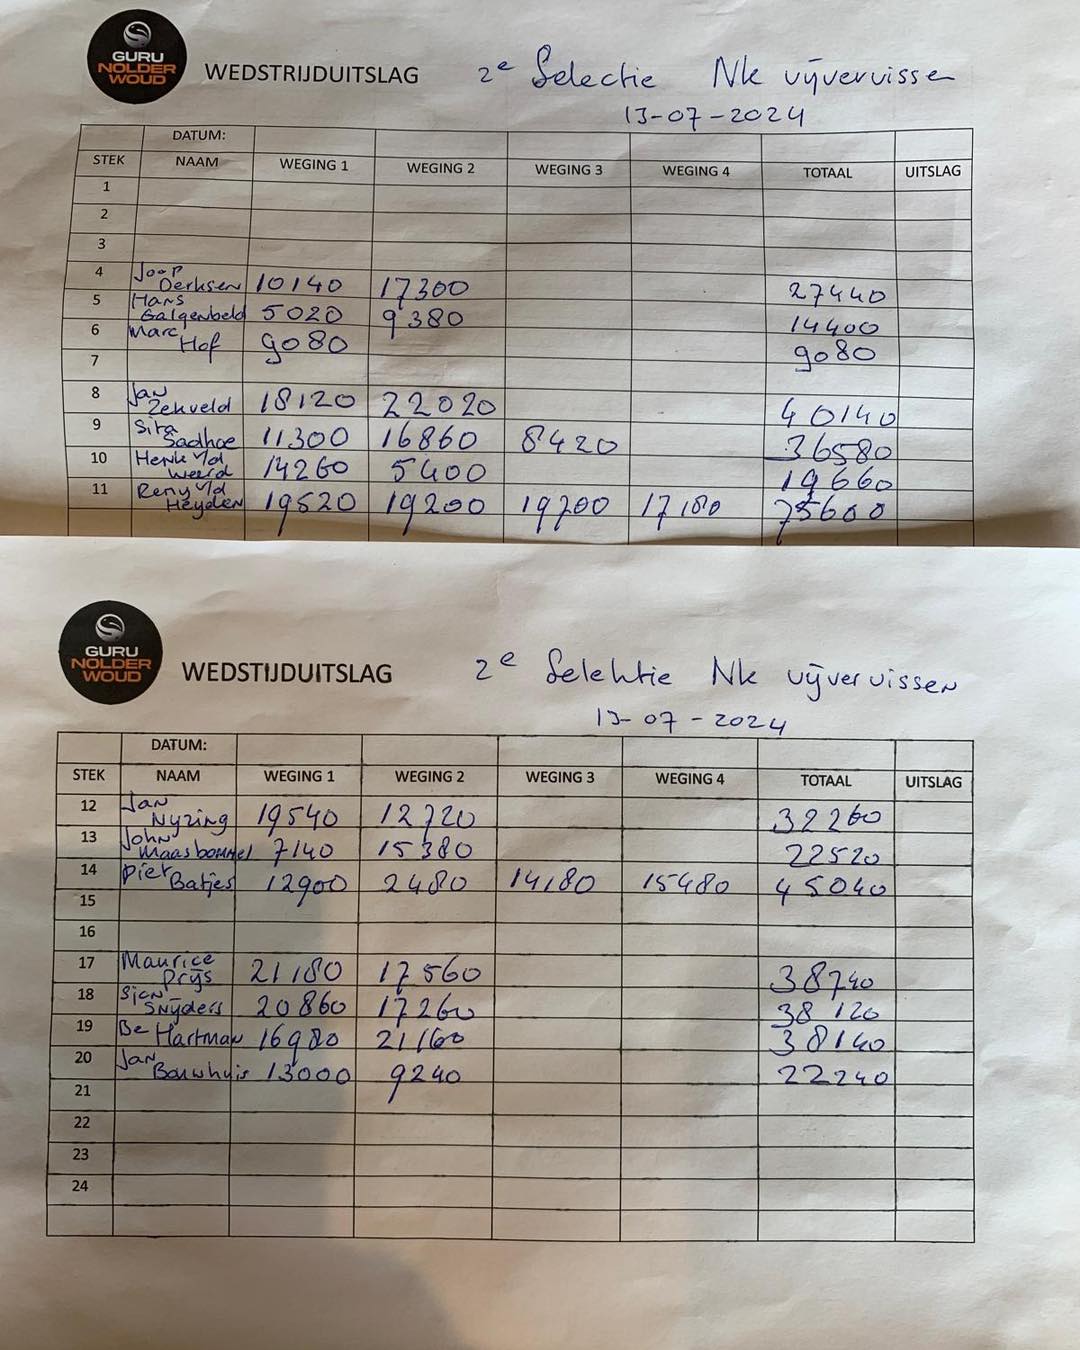 GURU
NOLDER
WOUD
WEDSTRIJDUITSLAG 2e Selectie Nk vijvervissen
13-07-2024
DATUM:
STEK NAAM WEGING 1 WEGING 2 WEGING 3 WEGING 4 TOTAAL UITSLAG
1
2
3
4 Joop Derksen 10140 17300 27440
5 Hans Galgenbeld 5020 9380 14400
6 Marc Hof 9080 9080
7
8 Jan Zekveld 18120 22020 40140
9 Sita Sadhoe 11300 16860 8420 36580
10 Henk v/d Weerd 14260 5400 19660
11 Reny v/d Heyden 19520 19200 19700 17180 75600
GURU
NOLDER
WOUD
WEDSTIJDUITSLAG 2e Selektie Nk vijvervissen
13-07-2024
DATUM:
STEK NAAM WEGING 1 WEGING 2 WEGING 3 WEGING 4 TOTAAL UITSLAG
12 Jan Nyzing 19540 12720 32260
13 John Maasbommel 7140 15380 22520
14 Piet Batjes 12900 2480 14180 15480 45040
15
16
17 Maurice Prijs 21180 17560 38740
18 Sjen Snijders 20860 17260 38120
19 Be Hartman 16980 21160 38140
20 Jan Bouwhuis 13000 9240 22240
21
22
23
24